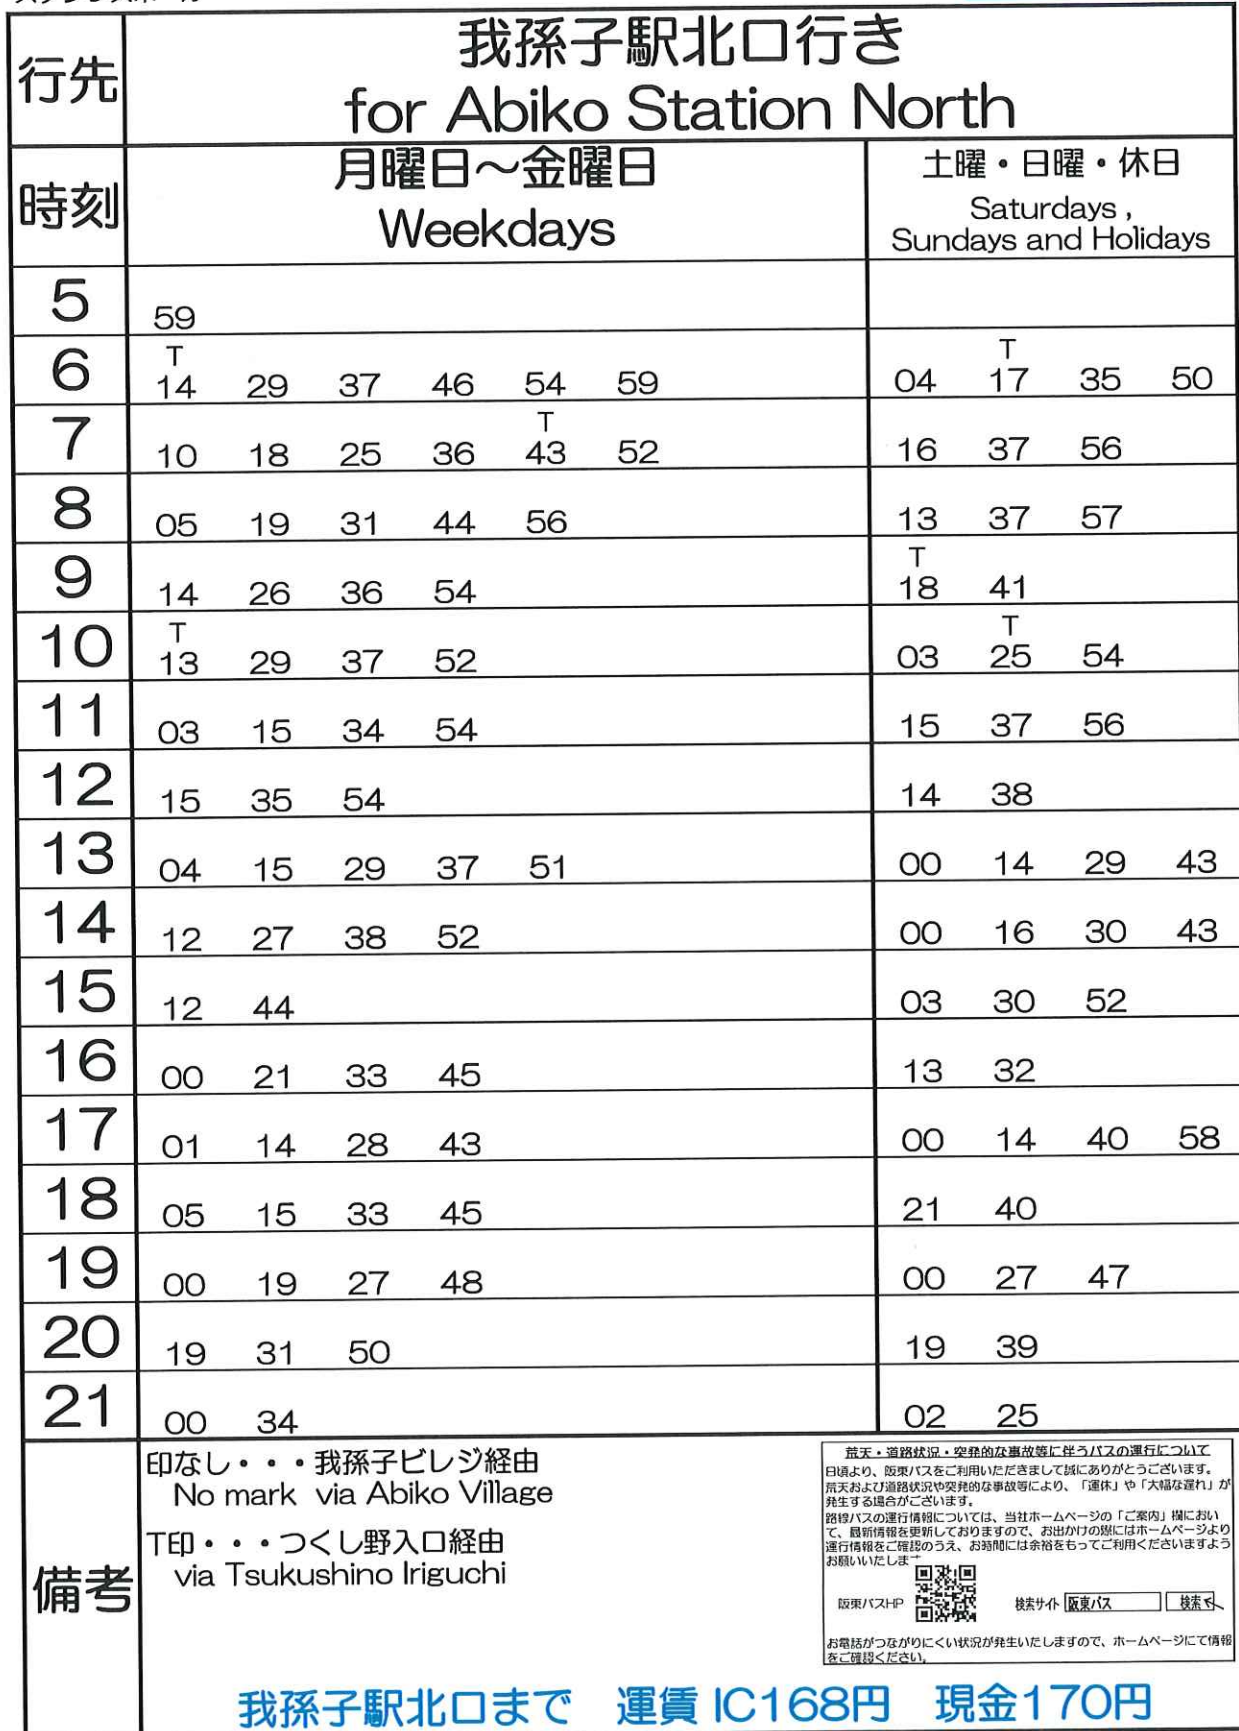 行先
我孫子駅北口行き
for Abiko Station North
時刻
月曜日～金曜日
Weekdays
土曜・日曜・休日
Saturdays ,
Sundays and Holidays
5
59
6
T
14 29 37 46 54 59
T
04 17 35 50
7
T
10 18 25 36 43 52
16 37 56
8
05 19 31 44 56
13 37 57
9
14 26 36 54
T
18 41
10
T
13 29 37 52
T
03 25 54
11
03 15 34 54
15 37 56
12
15 35 54
14 38
13
04 15 29 37 51
00 14 29 43
14
12 27 38 52
00 16 30 43
15
12 44
03 30 52
16
00 21 33 45
13 32
17
01 14 28 43
00 14 40 58
18
05 15 33 45
21 40
19
00 19 27 48
00 27 47
20
19 31 50
19 39
21
00 34
02 25
備考
印なし・・・我孫子ビレジ経由
No mark via Abiko Village
T印・・・つくし野入口経由
via Tsukushino Iriguchi
荒天・道路状況・突発的な事故等に伴うバスの運行について
日頃より、阪東バスをご利用いただきまして誠にありがとうございます。
荒天および道路状況や突発的な事故等により、「運休」や「大幅な遅れ」が
発生する場合がございます。
路線バスの運行情報については、当社ホームページの「ご案内」欄におい
て、最新情報を更新しておりますので、お出かけの際にはホームページより
運行情報をご確認のうえ、お時間には余裕をもってご利用くださいますよう
お願いいたしま
阪東バスHP
検索サイト 阪東バス 検索
お電話がつながりにくい状況が発生いたしますので、ホームページにて情報
をご確認ください。
我孫子駅北口まで 運賃 IC168円 現金170円